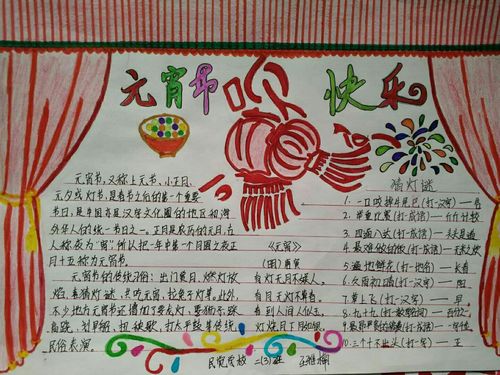 元宵节 快乐
元宵节，又称上元节、小正月、
元夕或灯节，是春节之后的第一个重要
节日，是中国亦是汉字文化圈的地区和海
外华人的传统节日之一。正月是农历的元月，古
人称夜为"宵"所以把一年中第一个月圆之夜正
月十五称为元宵节。
元宵节的传统习俗：出门赏月、燃灯放
焰、喜猜灯谜、共吃元宵、拉兔子灯等。此外，
不少地方元宵节还增加了耍龙灯、耍狮子、踩
高跷、划旱船、扭秧歌、打太平鼓等传统
民俗表演。
《元宵》
(明)唐寅
有灯无月不娱人，
有月无灯不算春。
春到人间人似玉，
灯烧月下月如银。
猜灯谜
1、一口咬掉牛尾巴(打一汉字)——告
2、举重比赛(打一成语)——斤斤计较
3、四面八方(打一成语)——
4、最难做的饭(打一成语)——无米之炊
5、遍地鲜花(打一地名)——长春
6、久雨初晴(打一地名)——贵阳
7、草上飞(打一汉字)——早
8、九十九(打一数学名词)——百分
9、(打一成语)——
10、三个才出头(打一字)——王
民党学校 二(3)班